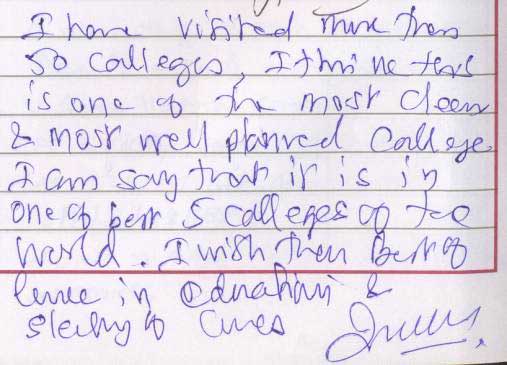 I have visited more than
50 colleges, I think this
is one of the most clean
& most well planned College
I can say that it is in
one of best 5 colleges of the
world. I wish them Best of
luck in Education &
of